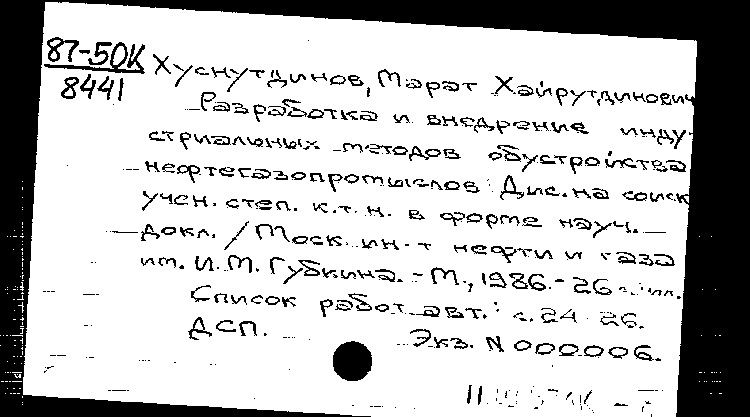 87-50К
8441
Хуснутдинов, Марат Хайрутдинович
Разработка и внедрение инду-
стриальных методов обустройства
нефтегазопромыслов: Дис. на соиск.
учен. степ. к.т.н. в форме науч.
докл. / Моск. ин-т нефти и газа
им. И.М. Губкина. - М., 1986. - 26 с.: ил.
Список работ авт.: с. 24-26.
ДСП. Экз. N 000006.